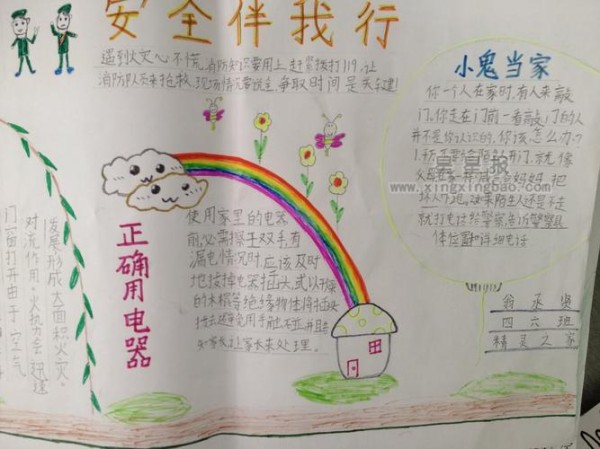 安全伴我行
遇到火灾心不慌,消防知识要用上,赶紧拨打119,让
消防队员来抢救,现场情况要说全,争取时间是关键
小鬼当家
你一个人在家时,有人来敲
门。你走在门前一看敲门的人
并不是你认识的,你该怎么办?
坏人吓跑。如果陌生人还是不走
就打电话给警察告诉警察具
体位置和详细电话
星星报
www.xingxingbao.com
正确用电器
使用家里的电器
前必需擦干双手,有
漏电情况时,应该及时
地拔掉电茶插头,或以干燥
的木棍等绝缘物体将插头
来处理。
翁丞
四六班
精灵之家
发展形成大面积火灾。
对流作用,火势会迅速
门窗打开由于空气